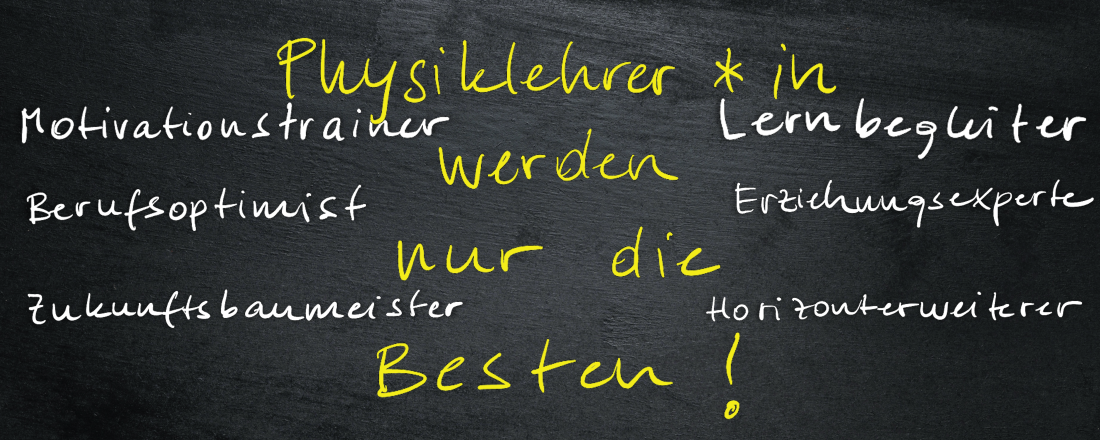 Physiklehrer * in
Motivationstrainer
Lernbegleiter
werden
Berufsoptimist
Erziehungsexperte
nur die
Zukunftsbaumeister
Horizonterweiterer
Besten !